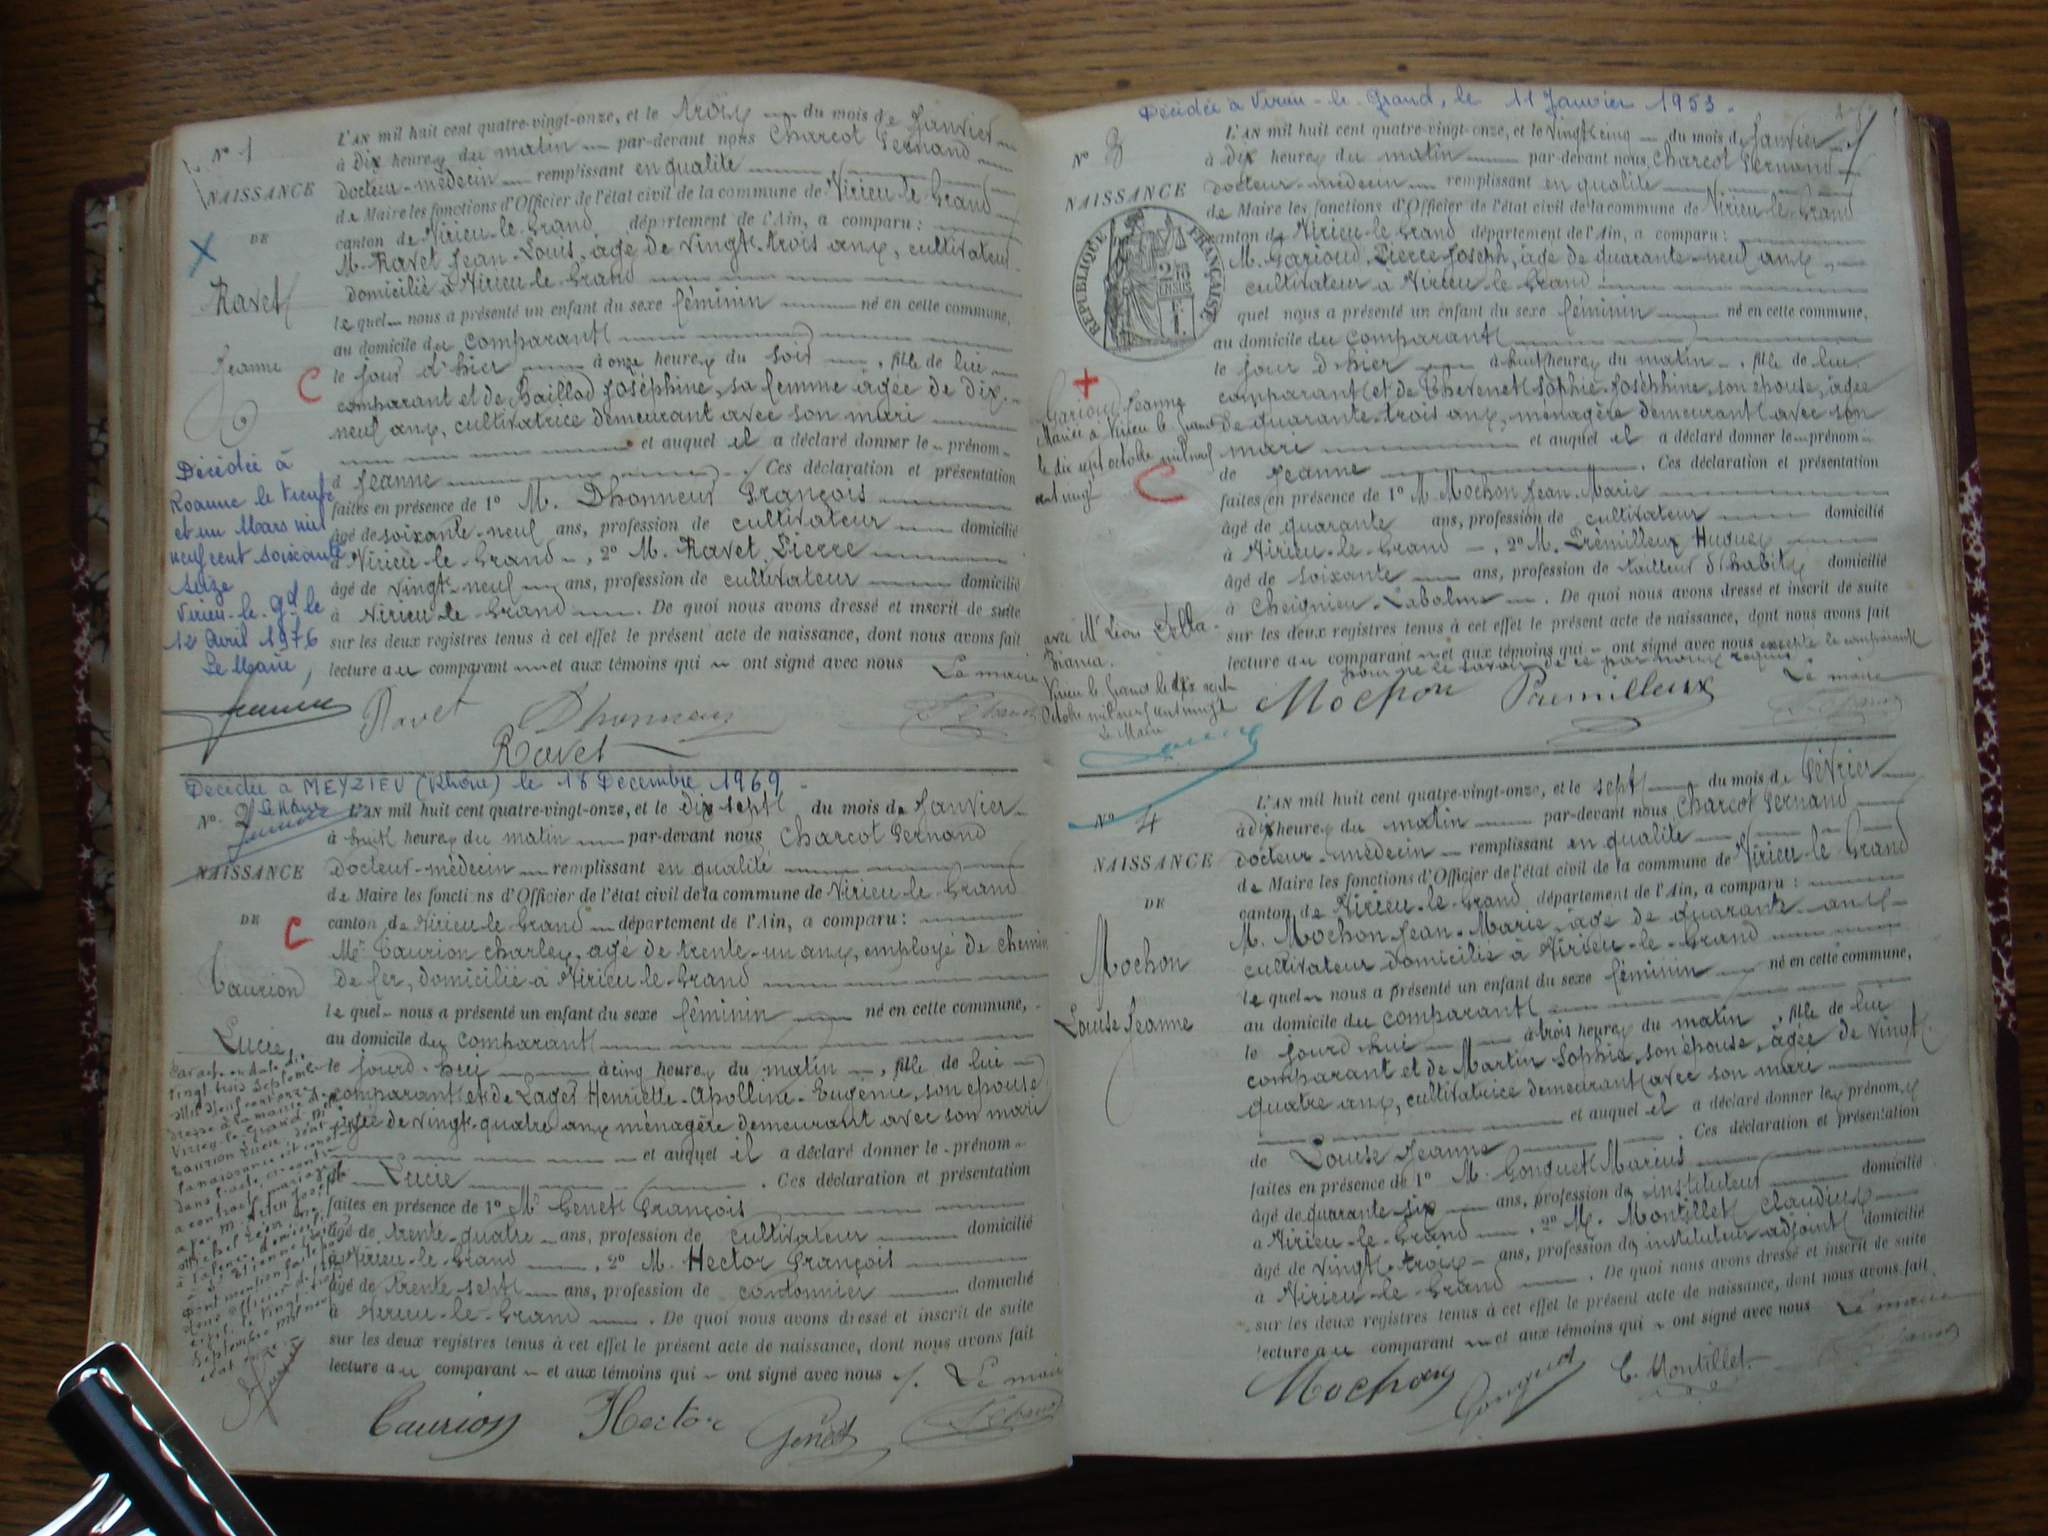 N° 1
NAISSANCE
DE
Ravet
Jeanne
C
Décédée à
Roanne le trente
et un Mars mil
neuf cent soixante
seize
Virieu-le-Gd le
12 Avril 1976
Le Maire,
L'AN mil huit cent quatre-vingt-onze, et le trois du mois de Janvier
à Dix heures du matin par-devant nous Charcot Fernand
Docteur-médecin remplissant en qualité
de Maire les fonctions d'Officier de l'état civil de la commune de Virieu-le-Grand
canton de Virieu-le-Grand département de l'Ain, a comparu :
M. Ravet Jean-Louis, âgé de vingt-trois ans, cultivateur
domicilié à Virieu-le-Grand
lequel nous a présenté un enfant du sexe féminin né en cette commune,
au domicile du comparant
le jour d'hier à onze heures du soir, fille de lui
comparant et de Baillod Joséphine, sa femme âgée de dix-
neuf ans, cultivatrice demeurant avec son mari
et auquel il a déclaré donner le prénom
d Jeanne. Ces déclaration et présentation
faites en présence de 1° M. Dhonneur François
âgé de soixante-neuf ans, profession de cultivateur domicilié
à Virieu-le-Grand, 2° M. Ravet Pierre
âgé de vingt-neuf ans, profession de cultivateur domicilié
à Virieu-le-Grand. De quoi nous avons dressé et inscrit de suite
sur les deux registres tenus à cet effet le présent acte de naissance, dont nous avons fait
lecture au comparant et aux témoins qui ont signé avec nous Le maire
Ravet Dhonneur
Ravet
Décédée à MEYZIEU (Rhône) le 18 Décembre 1969
Le Maire
N° 2
NAISSANCE
DE
C
Taurion
Lucie
L'AN mil huit cent quatre-vingt-onze, et le dix sept du mois de Janvier
à huit heures du matin par-devant nous Charcot Fernand
Docteur-médecin remplissant en qualité
de Maire les fonctions d'Officier de l'état civil de la commune de Virieu-le-Grand
canton de Virieu-le-Grand département de l'Ain, a comparu :
Mr Taurion Charles, âgé de trente-un ans, employé de chemin
de fer, domicilié à Virieu-le-Grand
lequel nous a présenté un enfant du sexe féminin né en cette commune,
au domicile du comparant
le jourd-hui à cinq heures du matin, fille de lui
comparant et de Lager Henriette-Apolline-Eugénie, son épouse
âgée de vingt-quatre ans ménagère demeurant avec son mari
et auquel il a déclaré donner le prénom
de Lucie. Ces déclaration et présentation
faites en présence de 1° Mr Genet François
âgé de trente-quatre ans, profession de cultivateur domicilié
à Virieu-le-Grand, 2° M. Hector François
âgé de trente sept ans, profession de cordonnier domicilié
à Virieu-le-Grand. De quoi nous avons dressé et inscrit de suite
sur les deux registres tenus à cet effet le présent acte de naissance, dont nous avons fait
lecture au comparant et aux témoins qui ont signé avec nous Le maire
Taurion Hector Genet
Par acte en date du
vingt trois Septembre
mil neuf cent onze
dressé à la mairie de
Virieu-le-Grand
Taurion Lucie, dont
la naissance est constatée
dans l'acte ci-contre
a contracté mariage
avec M.
Septembre mil neuf
cent onze
Décédée à Virieu-le-Grand, le 11 Janvier 1953.
N° 3
NAISSANCE
RÉPUBLIQUE FRANÇAISE
Garioud Jeanne
Mariée à Virieu le Grand
le dix sept octobre mil neuf
cent vingt
C
avec Mr Léon Della-
Bianca.
Virieu le Grand le dix sept
Octobre mil neuf cent vingt
Le Maire
L'AN mil huit cent quatre-vingt-onze, et le vingt cinq du mois de Janvier
à dix heures du matin par-devant nous, Charcot Fernand
Docteur-médecin remplissant en qualité
de Maire les fonctions d'Officier de l'état civil de la commune de Virieu-le-Grand
canton de Virieu-le-Grand département de l'Ain, a comparu :
M. Garioud Pierre Joseph, âgé de quarante-neuf ans,
cultivateur à Virieu-le-Grand
quel nous a présenté un enfant du sexe féminin né en cette commune,
au domicile du comparant
le jour d'hier à huit heures du matin, fille de lui
comparant et de Thevenet Sophie-Joséphine, son épouse, âgée
de quarante-trois ans, ménagère demeurant avec son
mari et auquel il a déclaré donner le prénom
de Jeanne. Ces déclaration et présentation
faites en présence de 1° M. Mochon Jean-Marie
âgé de quarante ans, profession de cultivateur domicilié
à Virieu-le-Grand, 2° M. Prémilleux Hugues
âgé de soixante ans, profession de tailleur d'habits domicilié
à Cheignieu-Labalme. De quoi nous avons dressé et inscrit de suite
sur les deux registres tenus à cet effet le présent acte de naissance, dont nous avons fait
lecture au comparant et aux témoins qui ont signé avec nous excepté le comparant
pour ne le savoir de ce par nous requis
Le maire
Mochon Premilleux
N° 4
NAISSANCE
DE
Mochon
Louise Jeanne
L'AN mil huit cent quatre-vingt-onze, et le sept du mois de Février
à dix heures du matin par-devant nous Charcot Fernand
Docteur-médecin remplissant en qualité
de Maire les fonctions d'Officier de l'état civil de la commune de Virieu-le-Grand
canton de Virieu-le-Grand département de l'Ain, a comparu :
M. Mochon Jean-Marie, âgé de quarante ans
cultivateur domicilié à Virieu-le-Grand
lequel nous a présenté un enfant du sexe féminin né en cette commune,
au domicile du comparant
le jourd-hui à trois heures du matin, fille de lui
comparant et de Martin Sophie, son épouse, âgée de vingt
quatre ans, cultivatrice demeurant avec son mari
et auquel il a déclaré donner les prénoms
de Louise Jeanne. Ces déclaration et présentation
faites en présence de 1° M. Gonguet Marius
âgé de quarante six ans, profession de instituteur domicilié
à Virieu-le-Grand, 2° M. Montillet Claudius
âgé de vingt-trois ans, profession de instituteur adjoint domicilié
à Virieu-le-Grand. De quoi nous avons dressé et inscrit de suite
sur les deux registres tenus à cet effet le présent acte de naissance, dont nous avons fait
lecture au comparant et aux témoins qui ont signé avec nous Le maire
Mochon Gonguet C. Montillet